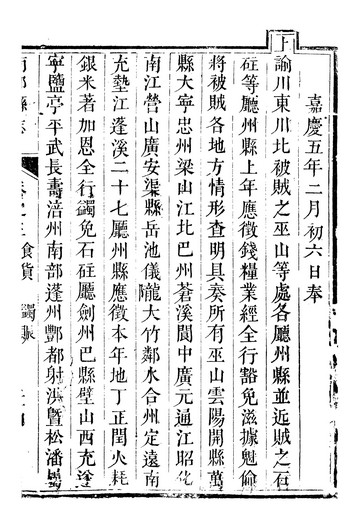 嘉慶五年二月初六日奉
上諭川東川北被賊之巫山等處各廳州縣並近賊之石
砫等廳州縣上年應徵錢糧業經全行豁免滋據魁倫
將被賊各地方情形查明具奏所有巫山雲陽開縣萬
縣大寧忠州梁山江北巴州蒼溪閬中廣元通江昭化
南江營山廣安渠縣岳池儀隴大竹鄰水合州定遠南
充墊江蓬溪二十七廳州縣應徵本年地丁正閏火耗
銀米著加恩全行蠲免石砫廳劍州巴縣璧山西充遂
寧鹽亭平武長壽涪州南部蓬州酆都射洪暨松潘屬
食貨 蠲賑